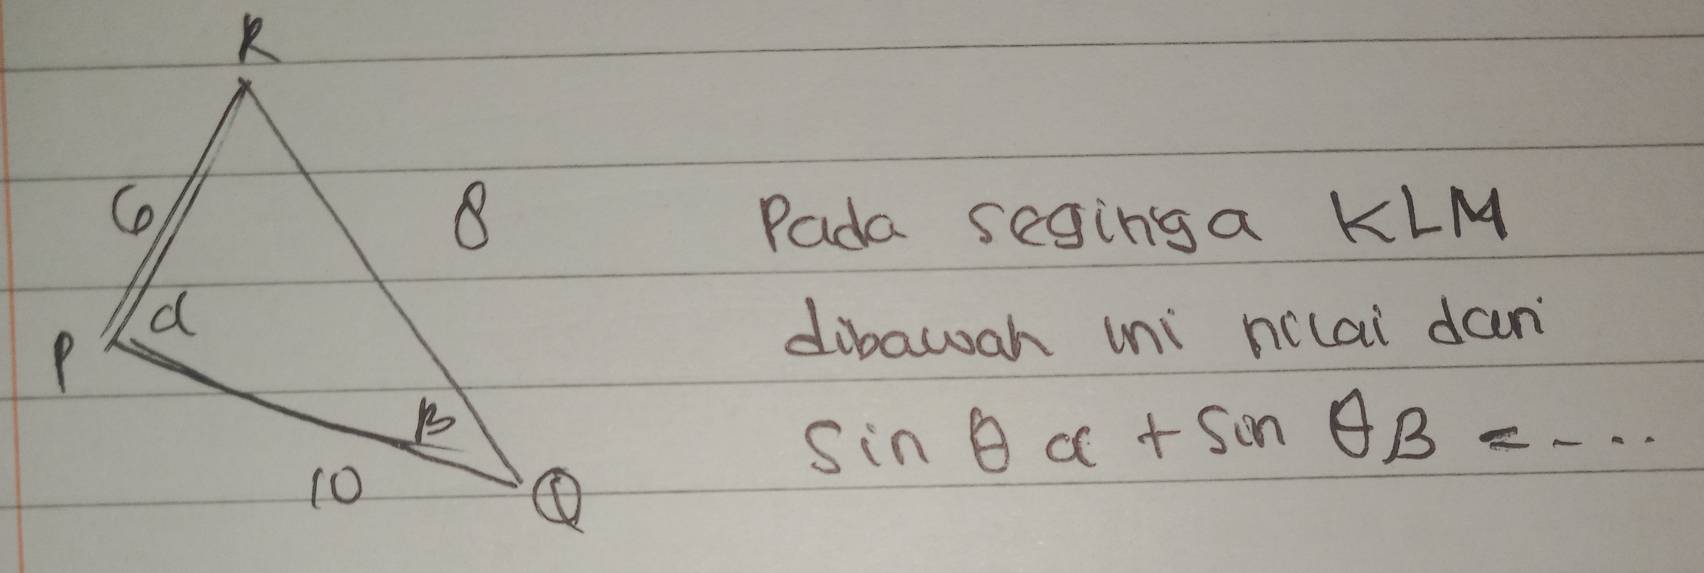 R
6
8
α
P
β
10
Q
Pada seginiga KLM
dibawah ini nilai dari
Sin θ α + Sin θ β = ....